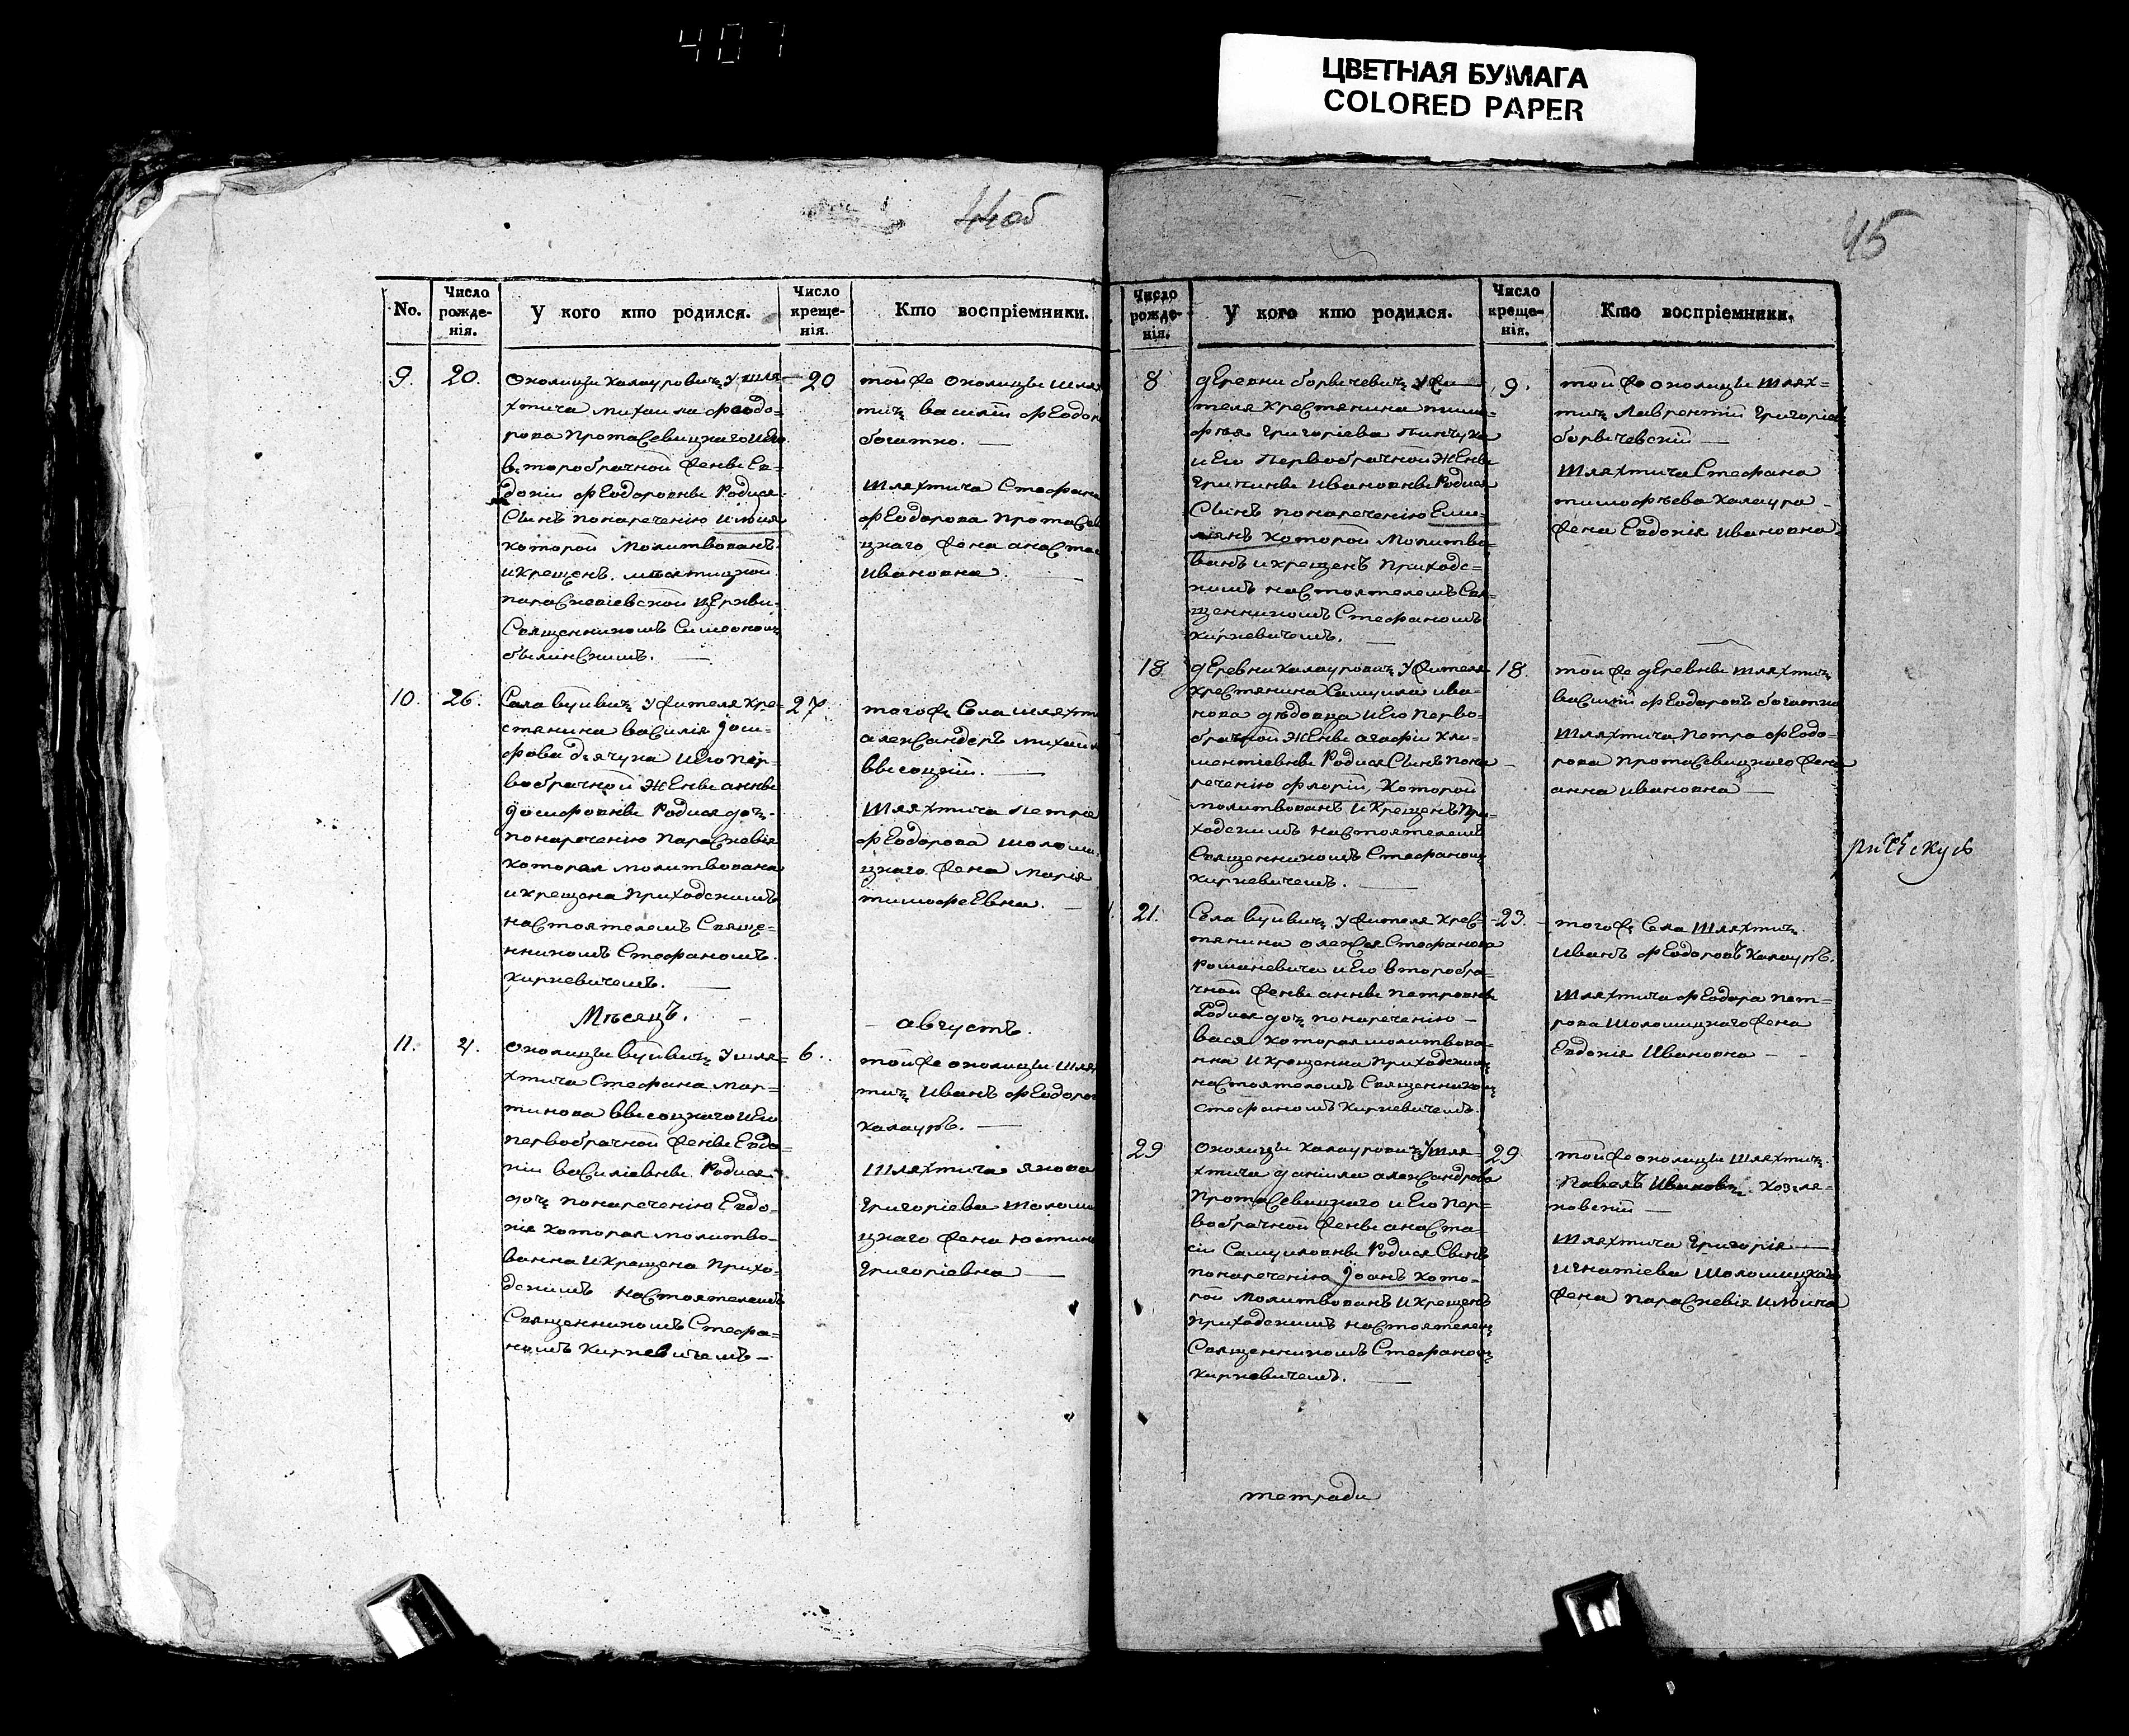 407
ЦВЕТНАЯ БУМАГА
COLORED PAPER
44об
No.
Число рожде-нія.
У кого кто родился.
Число креще-нія.
Кто воспріемники.
9. 20.
околицы халауровичъ у шля=
хтича михаила феодо=
рова протасевицкаго и его
второбрачной жены Ев=
докіи феодоровны Родися
Сынъ понареченію илиія
которой молитвованъ
и крещенъ
параскевіевской церкви
Священникомъ Симеономъ
20
той же околицы шлях
тичъ василій феодор
богатко.
Шляхтича Стефана
феодорова протасев
цкаго жена анаста
Ивановна.
10. 26.
Села вуйвичъ у жителя хре=
стянина василія Іоси=
фова дячука и его пер=
вобрачной жены анны
Іосифовны Родися дочь
понареченію параскевія
которая молитвована
и крещена приходскимъ
настоятелемъ Свяще=
нникомъ Стефаномъ
кирневичемъ.
27.
того же Села шляхти
александеръ михайл
высоцкій.
Шляхтича петра
феодорова шоломи
цкаго жена марія
тимофеевна.
Мѣсяцъ.
августъ.
11. 4.
околицы вуйвичъ у шля=
хтича Стефана мар=
тинова высоцкаго и его
первобрачной жены Евдо=
кіи василіевны Родися
дочь понареченію Евдо=
кія которая молитво=
ванна и крещена прихо=
дскимъ настоятелемъ
Священникомъ Стефа=
номъ кирневичемъ
6.
той же околицы шлях
тичъ Иванъ феодоров
халауръ.
Шляхтича якова
Григоріева шоломи
цкаго жена юстина
Григоріевна
45
Число рожде-нія.
У кого кто родился.
Число креще-нія.
Кто воспріемники.
8
деревни борвичевичъ у жи
теля крестянина тимо=
фея григоріева пинчука
и его первобрачной жены
Грипины Ивановны Родися
Сынъ понареченію Еми=
ліянъ которой молитво=
ванъ и крещенъ приходс=
кимъ настоятелемъ Свя=
щенникомъ Стефаномъ
кирневичемъ.
9.
той же околицы шлях=
тичъ Лаврентій григоріев
борвичевскій
Шляхтича Стефана
тимофѣева халаура
жена Евдокія Ивановна
18.
деревни халауровичъ у жителя
крестянина Самуила ива=
нова дѣдовца и его перво=
брачной жены агафіи кли=
ментіевны Родися Сынъ пона
реченію флорій, которой
молитвованъ и крещенъ при=
ходскимъ настоятелемъ
Священникомъ Стефаномъ
кирневичемъ.
18.
той же деревны шляхтичъ
василій феодоровъ богатко
Шляхтича петра феодо=
рова протасевицкаго жена
анна ивановна
21.
Села вуйвичъ у жителя крес=
тянина олексея Стефанова
романевича и его второбра=
чной жены анны петровны
Родися дочь понареченію
васа которая молитвова=
нна и крещенна приходскимъ
настоятелемъ Священникомъ
стефаномъ кирневичемъ.
23.
того же Села шляхтичъ
Иванъ феодоровъ халауръ.
Шляхтича феодора пет=
рова шоломицкаго жена
Евдокія Ивановна
29
околицы халауровичъ у шля=
хтича даніила александрова
протасевицкаго и его пер=
вобрачной жены анаста=
сіи Самуиловны Родися Сынъ
понареченію Іоанъ кото=
рой молитвованъ и крещенъ
приходскимъ настоятелемъ
Священникомъ Стефаномъ
кирневичемъ.
29
той же околицы шляхтичъ
Павелъ Ивановъ козля=
ковскій
Шляхтича Григорія
Игнатіева шоломицкаго
жена параскевія илиина
тетради